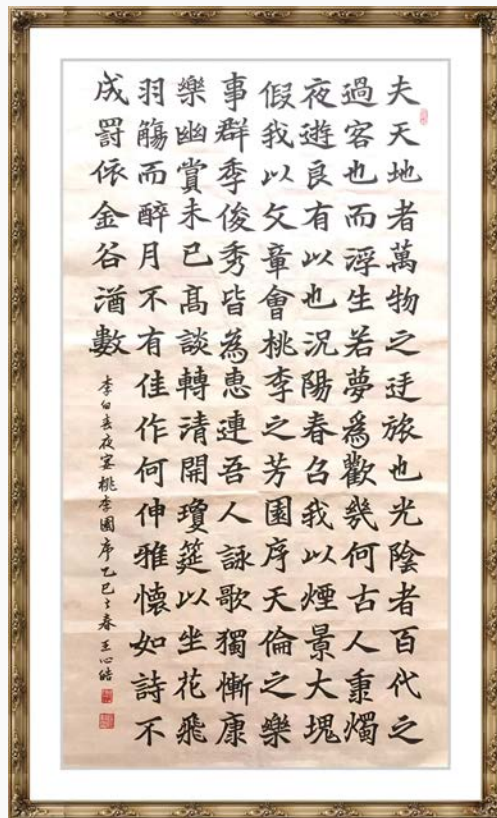 夫天地者萬物之逆旅也光陰者百代之
過客也而浮生若夢爲歡幾何古人秉燭
夜遊良有以也況陽春召我以煙景大塊
假我以文章會桃李之芳園序天倫之樂
事群季俊秀皆為惠連吾人詠歌獨慚康
樂幽賞未已髙談轉清開瓊筵以坐花飛
羽觴而醉月不有佳作何伸雅懷如詩不
成罰依金谷酒數
李白春夜宴桃李園序乙巳之春王心皓